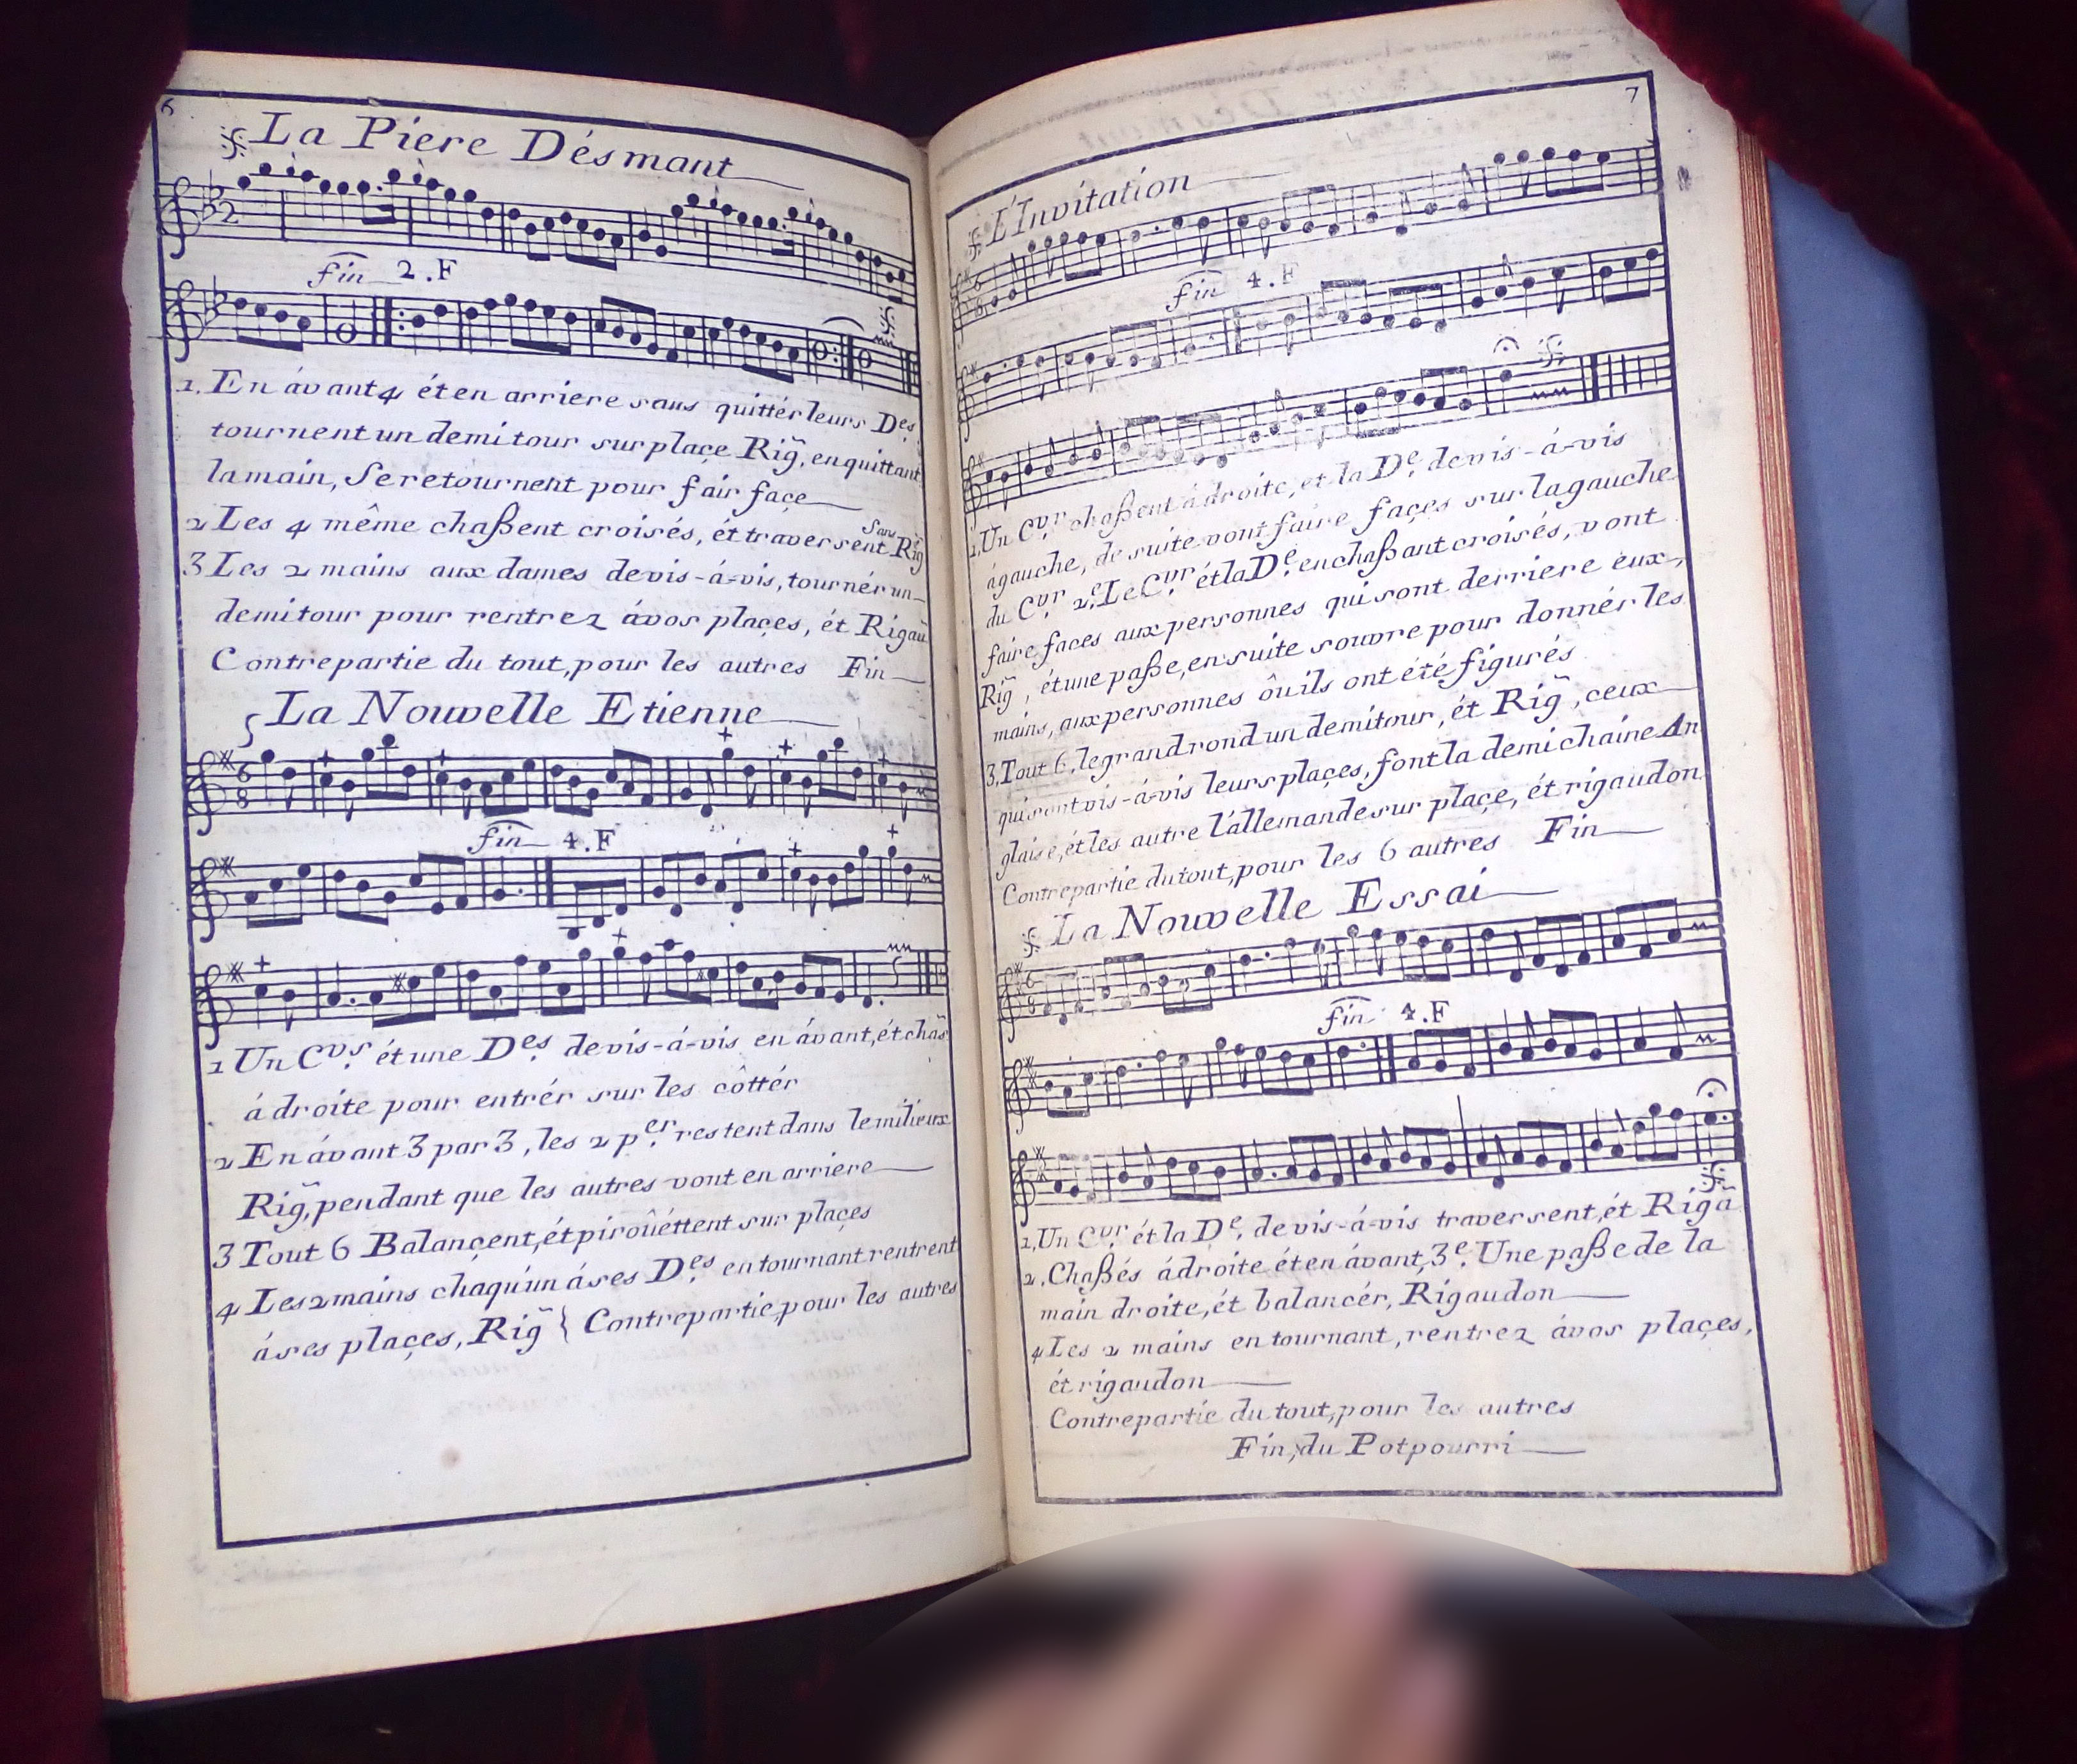 6
La Piere Désmant
2
fin 2.F
1. En ávant 4 ét en arriere sans quittér leurs Des
tournent un demi tour sur plaçe Rig̃, en quittant
la main, Se retournent pour fair façe
2 Les 4 même chaßent croisés, ét traversent sans Rig̃
3 Les 2 mains aux dames devis-á-vis, tournér un
demi tour pour rentrez ávos plaçes, ét Rigau
Contrepartie du tout, pour les autres Fin
La Nouvelle Etienne
6
8
fin 4.F
1 Un Cvs ét une Des devis-á-vis en ávant, ét chas
á droite pour entrér sur les côttér
2 En ávant 3 par 3, les 2 per restent dans le milieux
Rig̃, pendant que les autres vont en arriere
3 Tout 6 Balançent, ét piroûéttent sur plaçes
4 Les 2 mains chaqu'un á ses Des en tournant rentrent
á ses plaçes, Rig̃ } Contrepartie, pour les autres
7
L'Invitation
6
fin 4.F
1. Un Cvr chaßent á droite, et la De devis-á-vis
á gauche, de suite vont faire façes sur la gauche
du Cvr 2e. Le Cvr ét la De en chaßant croisés, vont
faire faces aux personnes qui sont derriere eux,
Rig̃, ét une paße, en suite souvre pour donnér les
mains, aux personnes ôu ils ont été figurés
3. Tout 6, le grand rond un demi tour, ét Rig̃, ceux
qui sont vis-á-vis leurs plaçes, font la demi chaine An
glaise, ét les autre l'allemande sur plaçe, ét rigaudon
Contrepartie du tout, pour les 6 autres Fin
La Nouvelle Essai
6
8
fin 4.F
1. Un Cvr ét la De, devis-á-vis traversent, ét Rigã
2. Chaßés á droite ét en ávant, 3e. Une paße de la
main droite, ét balancér, Rigaudon
4 Les 2 mains en tournant, rentrez ávos plaçes,
ét rigaudon
Contrepartie du tout, pour les autres
Fin, du Potpourri